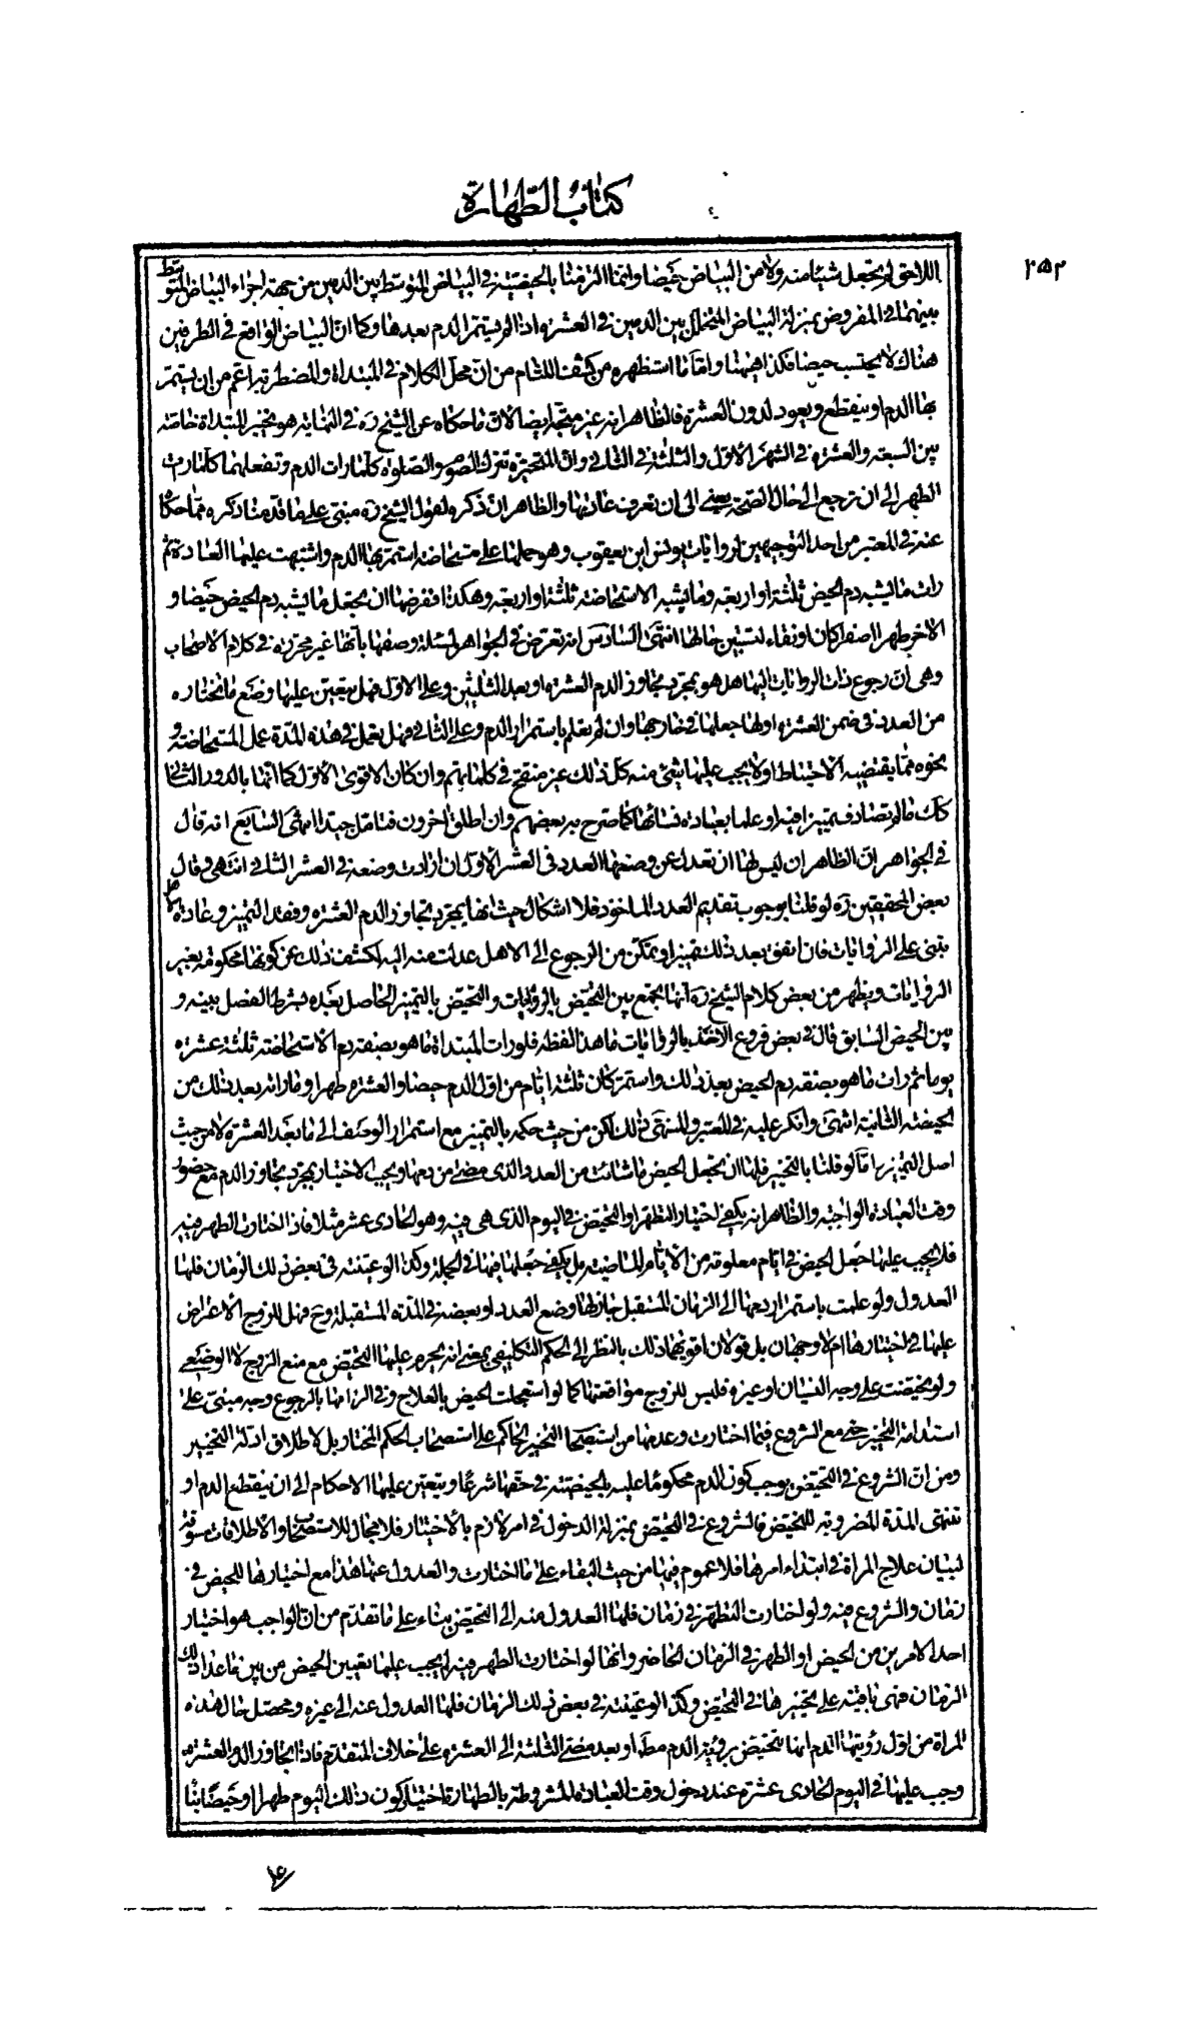 كتاب الطهارة
٢٥٢
اللاحق لم يجعل شيئا منه ولا من البياض حيضا وانما التزمنا بالحيضية في البياض المتوسط بين الدمين من جهة اجراء البياض المتوسط
بينهما في المفروض بمنزلة البياض المتخلل بين الدمين في العشرة اذا لم يستمر الدم بعدها وكما ان البياض الواقع في الطرفين
هناك لا يحتسب حيضا فكذا هيهنا واما ما استظهره من كشف اللثام من ان محل الكلام في المبتداة والمضطربة اعم من ان يستمر
بها الدم او ينقطع ويعود لدون العشرة فالظاهر انه غير متجه ايضا لان ما حكاه عن الشيخ ره في النهاية هو تخيير المبتداة خاصة
بين السبعة والعشرة في الشهر الاول والثلثة في الثاني وان المتحيرة تترك الصوم والصلوة كلما رات الدم وتفعلهما كلما رات
الطهر الى ان ترجع الى حال الصحة يعني الى ان تعرف عادتها والظاهر ان ذكره لقول الشيخ ره مبتنى على ما قدمنا ذكره مما حكاه
عنه في المعتبر من احد التوجيهين لروايات يونس ابن يعقوب وهو حملها على مستحاضة استمر بها الدم واشتبهت عليها العادة ثم
رات ما يشبه دم الحيض ثلثة او اربعة وما يشبه الاستحاضة ثلثة او اربعة وهكذا ففرضها ان يجعل ما يشبه دم الحيض حيضا و
الاخر طهرا اصفرا كان او نقاء لتستبين حالها انتهى السادس انه تعرض في الجواهر لمسئلة وصفها بانها غير محررة في كلام الاصحاب
وهى ان رجوع ذات الروايات اليها هل هو بمجرد تجاوز الدم العشرة او بعد الثلثين وعلى الاول فهل يتعين عليها وضع ما تختاره
من العدد في ضمن العشرة او لها جعلها في خارجها وان لم يعلم باستمرار الدم وعلى الثاني فهل يعمل في هذه المدة عمل المستحاضة و
نحوه مما يقتضيه الاحتياط او لا يجب عليها شئ منه كل ذلك غير منقح في كلماتهم وان كان الاقوى الاول كما انها بالدور الثاني
كك ما لم تصادف تمييزا فيه او علما بعادة نسائها كما صرح به بعضهم وان اطلق اخرون فتامل جيدا انتهى السابع انه قال
في الجواهر ان الظاهر ان ليس لها ان تعدل عن وضعها العدد في العشر الاول ان ارادت وضعه في العشر الثاني انتهى وقال
بعض المحققين ره لو قلنا بوجوب تقديم العدد الماخوذ فلا اشكال حيث انها بمجرد تجاوز الدم العشرة وفقد التمييز وعادة الاهل
تبنى على الروايات فان اتفق بعد ذلك تمييز او تمكن من الرجوع الى الاهل عدلت منه اليه لكشف ذلك عن كونها محكومة بغير
الروايات ويظهر من بعض كلام الشيخ ره انها يجمع بين التحيض بالروايات والتحيض بالتمييز الحاصل بعده بشرط الفصل بينه و
بين الحيض السابق قال في بعض فروع الاخذ بالروايات ما هذا لفظه فلو رات المبتداة ما هو بصفة دم الاستحاضة ثلثة عشرة
يوما ثم رات ما هو بصفة دم الحيض بعد ذلك واستمر كان ثلثة ايام من اول الدم حيضا والعشرة طهرا وما راته بعد ذلك من
الحيضة الثانية انتهى وانكر عليه في المعتبر والمنتهى ذلك لكن من حيث حكمه بالتمييز مع استمرار الوصف الى ما بعد العشرة لا من حيث
اصل التمييز اما لو قلنا بالتخيير فلها ان تجعل الحيض ما شائت من العدد الذى مضى من دمها ويجب الاختيار بمجرد تجاوز الدم مع حضور
وقت العبادة الواجبة والظاهر انه يكفى اختيار التطهر او التحيض في اليوم الذى هى فيه وهو الحادى عشر مثلا فاذا اختارت الطهر فيه
فلا يجب عليها جعل الحيض في ايام معلومة من الايام الماضية بل يكفى جعلها فيها في الجملة وكذا لو عينته في بعض ذلك الزمان فلها
العدول ولو علمت باستمرار دمها الى الزمان المستقبل جاز لها وضع العدد او بعضه في المدة المستقبلة وح فهل للزوج الاعتراض
عليها في اختيارها ام لا وجهان بل قولان اقويهما ذلك بالنظر الى الحكم التكليفى بمعنى انه يحرم عليها التحيض مع منع الزوج لا الوضعى
ولو تحيضت على وجه النسيان او غيره فليس للزوج مواقعتها كما لو استعجلت الحيض بالعلاج وفي الزامها بالرجوع وجه مبنى على
استدامة التخيير حتى مع الشروع فيما اختارت وعدمها من استصحاب التخيير الحاكم على استصحاب الحكم المختار بل لاطلاق ادلة التخيير
ومن ان الشروع في التحيض يوجب كون الدم محكوما عليه بالحيضية في حقها شرعا ويتعين عليها الاحكام الى ان ينقطع الدم او
تنتهى المدة المضروبة للتحيض فالشروع في التحيض بمنزلة الدخول في امر لازم بالاختيار فلا مجال للاستصحاب والاطلاقات مسوقة
لبيان علاج المراة في ابتداء امرها فلا عموم فيها من حيث البقاء على ما اختارت والعدول عنها هذا مع اختيارها للحيض في
زمان والشروع فيه ولو اختارت التطهر في زمان فلها العدول منه الى التحيض بناء على ما تقدم من ان الواجب هو اختيار
احد الامرين من الحيض او الطهر في الزمان الحاضر وانها لو اختارت الطهر فيه لم يجب عليها تعيين الحيض من بين ما عدا ذلك
الزمان فهى باقية على تخييرها في التحيض وكذا لو عينته في بعض ذلك الزمان فلها العدول عنه الى غيره ومحصل حال هذه
المراة من اول رؤيتها الدم انها تتحيض برؤية الدم مط او بعد مضى الثلثة الى العشرة على خلاف المتقدم فاذا تجاوز الدم العشرة
وجب عليها في اليوم الحادى عشرة عند دخول وقت العبادة المشروطة بالطهارة اختيار كون ذلك اليوم طهرا او حيضا بناء